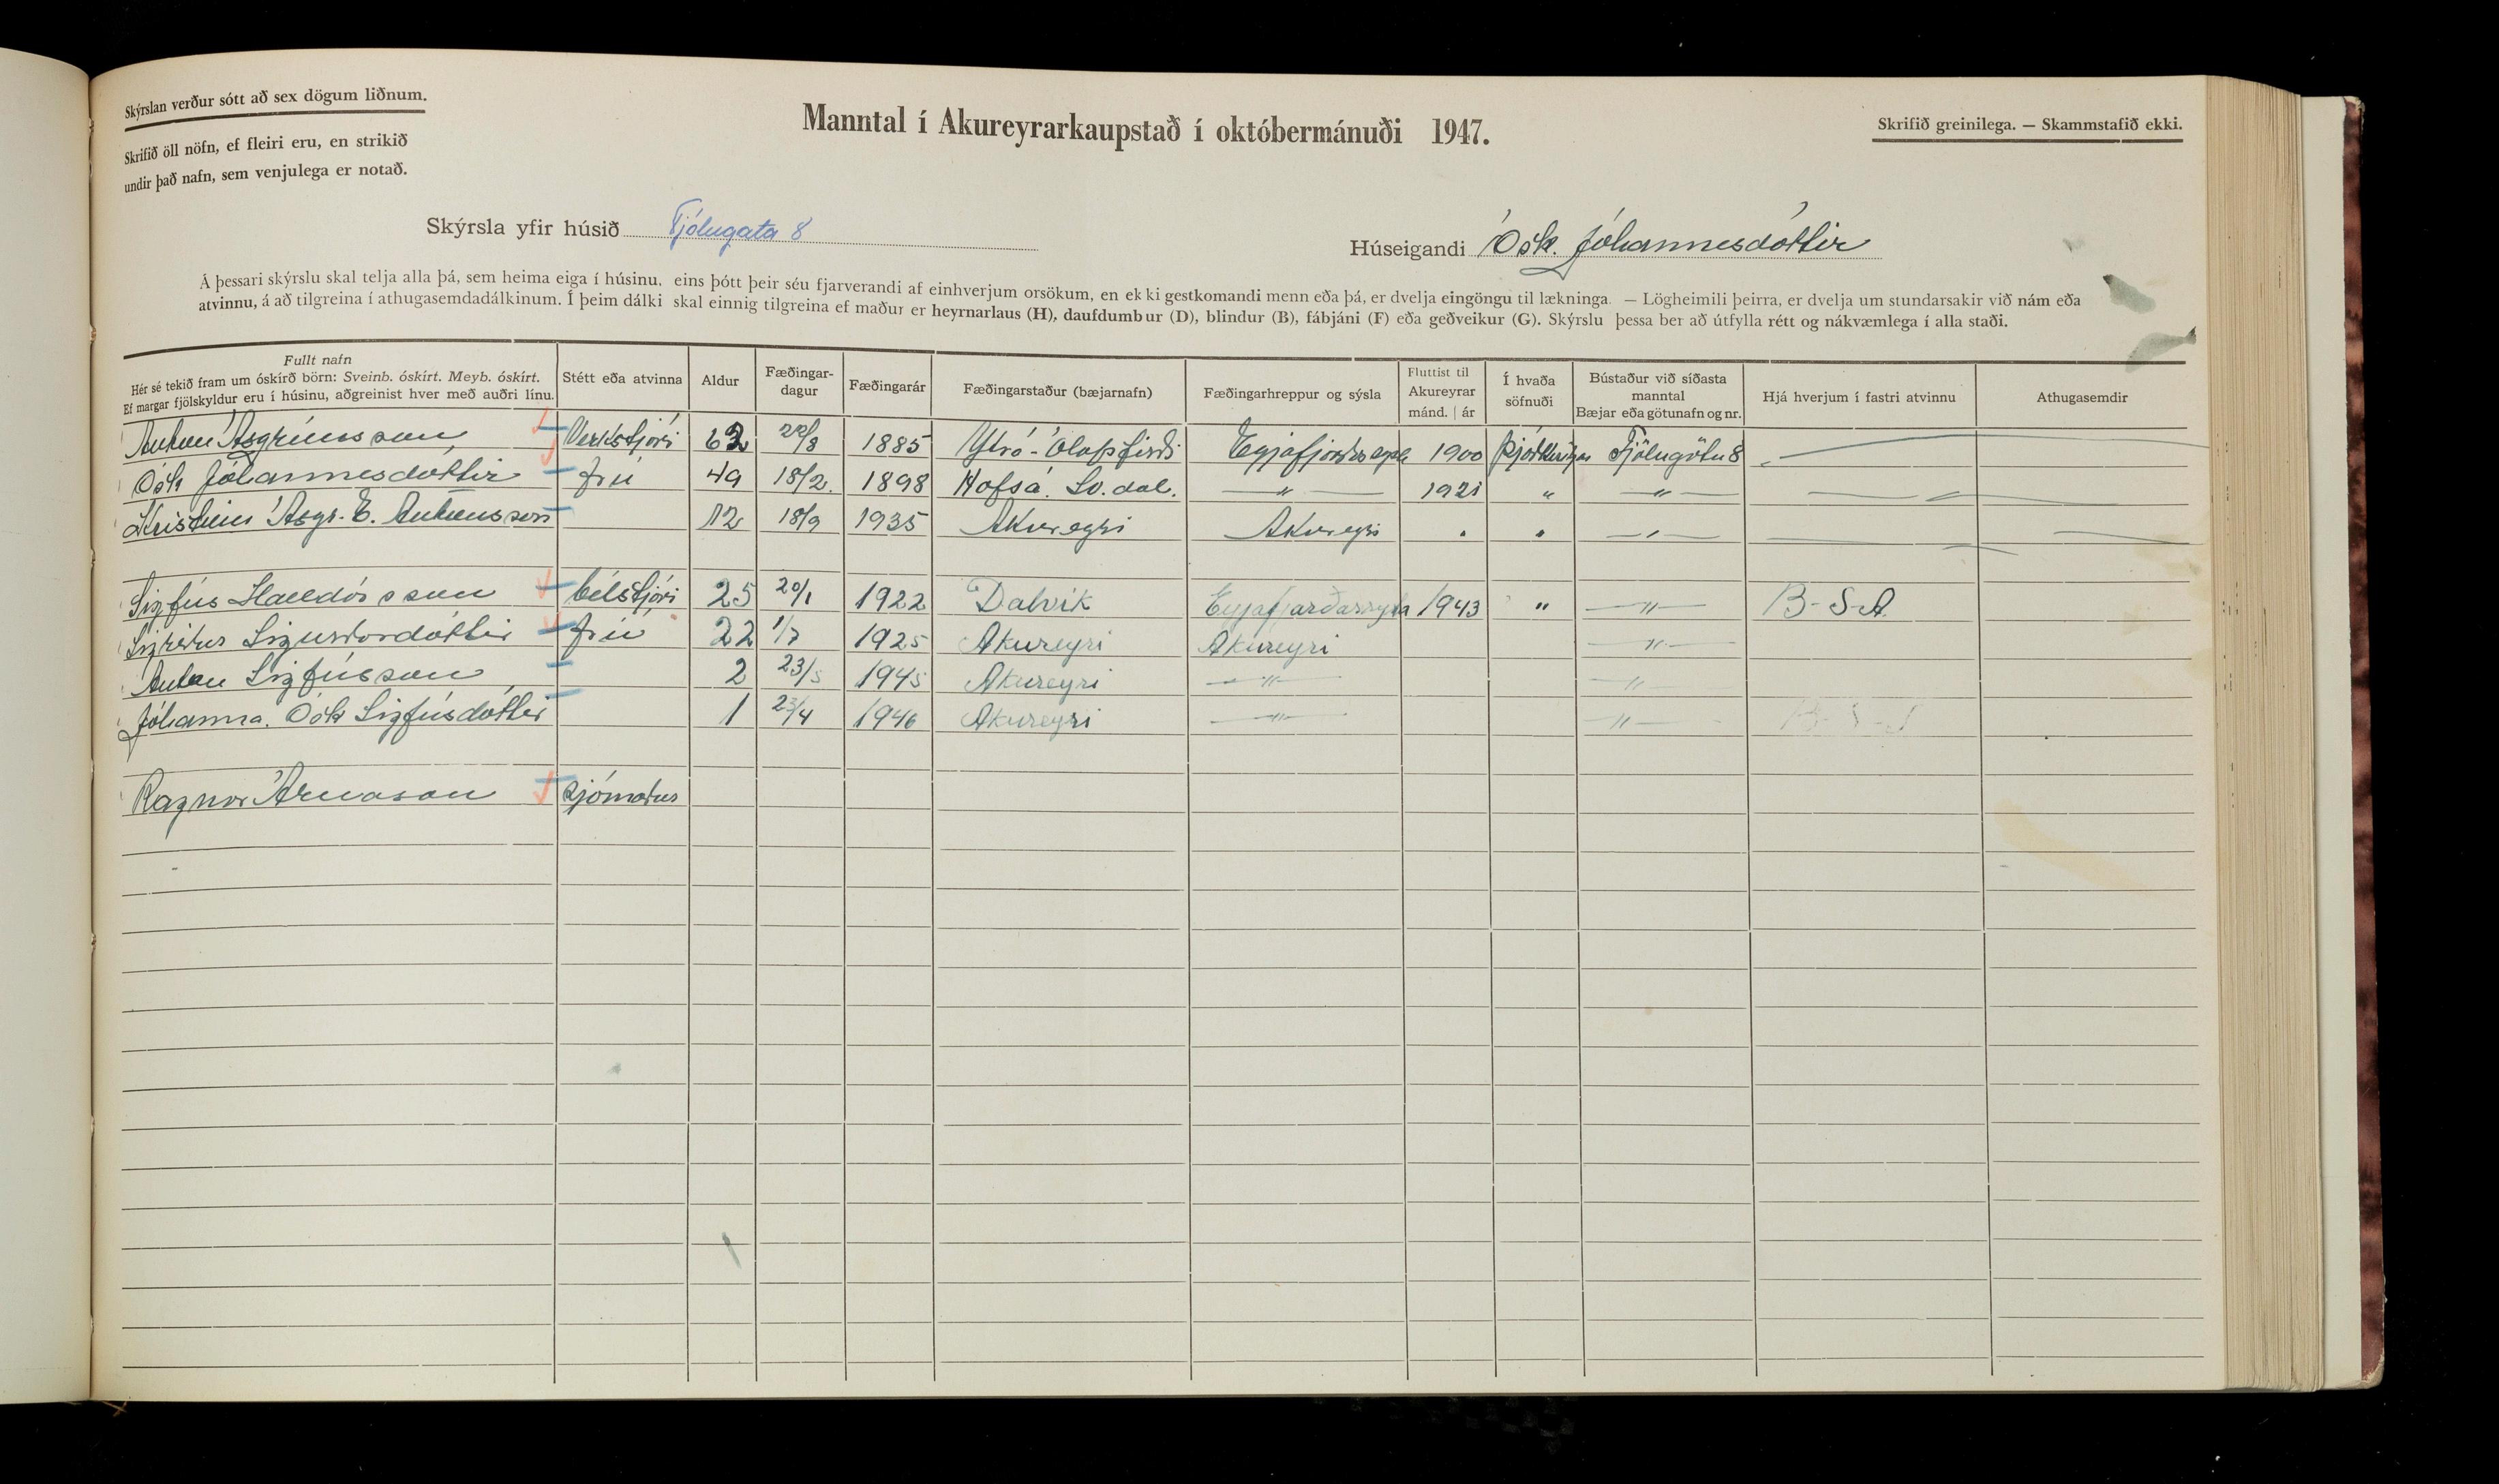 Skýrslan verður sótt að sex dögum liðnum.
Skrifið öll nöfn, ef fleiri eru, en strikið
undir það nafn, sem venjulega er notað.
Manntal í Akureyrarkaupstað í októbermánuði 1947.
Skrifið greinilega. — Skammstafið ekki.
Skýrsla yfir húsið Fjólugata 8
Húseigandi Ósk. Jóhannesdóttir
Á þessari skýrslu skal telja alla þá, sem heima eiga í húsinu, eins þótt þeir séu fjarverandi af einhverjum orsökum, en ekki gestkomandi menn eða þá, er dvelja eingöngu til lækninga. — Lögheimili þeirra, er dvelja um stundarsakir við nám eða
atvinnu, á að tilgreina í athugasemdadálkinum. Í þeim dálki skal einnig tilgreina ef maður er heyrnarlaus (H), daufdumbur (D), blindur (B), fábjáni (F) eða geðveikur (G). Skýrslu þessa ber að útfylla rétt og nákvæmlega í alla staði.
Fullt nafn
Hér sé tekið fram um óskírð börn: Sveinb. óskírt. Meyb. óskírt.
Ef margar fjölskyldur eru í húsinu, aðgreinist hver með auðri línu.
Stétt eða atvinna
Aldur
Fæðingar-
dagur
Fæðingarár
Fæðingarstaður (bæjarnafn)
Fæðingarhreppur og sýsla
Fluttist til
Akureyrar
mánd. | ár
Í hvaða
söfnuði
Bústaður við síðasta
manntal
Bæjar eða götunafn og nr.
Hjá hverjum í fastri atvinnu
Athugasemdir
Anton Ásgrímsson Verkstjóri 62 22/8 1885 Ytró-Ólafsfirði 1900 Fjólugötu 8
Ósk Jóhannesdóttir frú 49 18/2. 1898 Hofsá. Sv.dal. — " — 1921 " — " —
Ásgr. E. Antonsson 12 18/9 1935 Akureyri Akureyri — " —
Sigfús Halldórsson bílstjóri 25 20/1 1922 Dalvík Eyjafjarðarsýsla 1943 " — " — B-S-A.
Sigurðardóttir frú 22 1/7 1925 Akureyri Akureyri — " —
Anton Sigfússon 2 23/5 1945 Akureyri — " — — " —
Jóhanna. Ósk Sigfúsdóttir 1 23/4 1946 Akureyri — " — — " —
Ragnar Árnason sjómaður